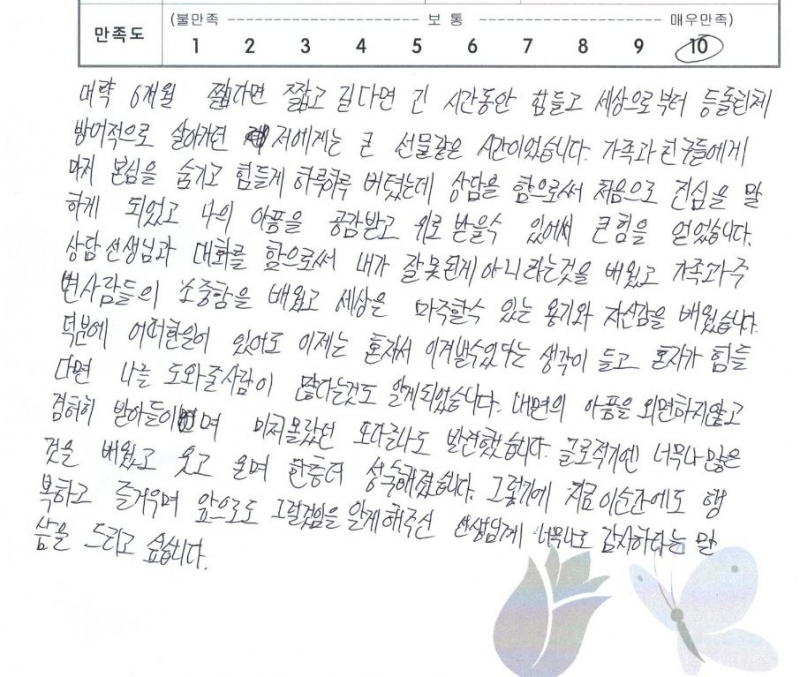 만족도 (불만족 보 통 매우만족)
1 2 3 4 5 6 7 8 9 10
대략 6개월 짧다면 짧고 길다면 긴 시간동안 힘들고 세상으로부터 등돌린채
방어적으로 살아가던 저에게는 큰 선물같은 시간이었습니다. 가족과 친구들에게
마저 본심을 숨기고 힘들게 하루하루 버텼는데 상담을 함으로써 처음으로 진심을 말
하게 되었고 나의 아픔을 공감받고 위로 받을수 있어서 큰힘을 얻었습니다.
상담선생님과 대화를 함으로써 내가 잘못된게아니라는것을 배웠고 가족과주
변사람들의 소중함을 배웠고 세상은 마주할수 있는 용기와 자신감을 배웠습니다.
덕분에 어떠한일이 있어도 이제는 혼자서 이겨낼수있다는 생각이 들고 혼자가 힘들
다면 나를 도와줄사람이 많다는것도 알게되었습니다. 내면의 아픔을 외면하지않고
겸허히 받아들이며 미처몰랐던 또다른나도 발견했습니다. 글로적기엔 너무나많은
것을 배웠고 웃고 울며 한층더 성숙해졌습니다. 그렇기에 지금이순간에도 행
복하고 즐거우며 앞으로도 그럴것임을 알게해주신 선생님께 너무나도 감사하다는 말
씀을 드리고 싶습니다.